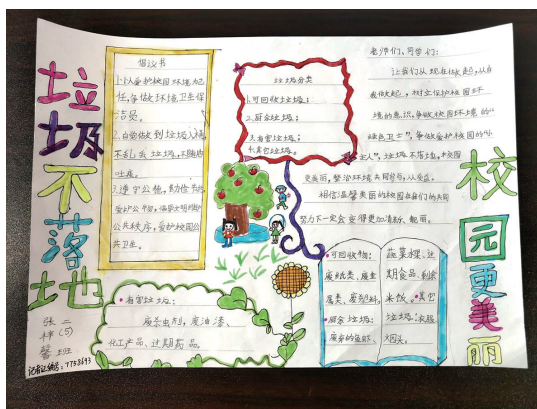 垃圾不落地
校园更美丽
倡议书
1.以爱护校园环境为己
任,争做环境卫生保
洁员。
2.自觉做到垃圾入桶
不乱丢垃圾,不随地
吐痰。
3.遵守公德,
公共秩序,爱护校园公
共卫生。
垃圾分类
1.可回收垃圾;
2.厨余垃圾;
3.有害垃圾;
4.其它垃圾。
老师们、同学们:
让我们从现在做起,从自
我做起,树立保护校园环
境的意识,争做校园环境的"
绿色卫士",争做爱护校园的"小
主人",垃圾不落地,校园
更美丽,整治环境共同参与,从我做起。
相信温馨美丽的校园在我们的共同
努力下一定会变得更加清新、靓丽。
有害垃圾:
废杀虫剂,废油漆、
化工产品、过期药品。
可回收物:
废纸类、废金
属类、废塑料。
厨余垃圾:
废弃的鱼虾、
蔬菜水果、过
期食品、剩余
米饭。其它
垃圾:
烟头。
张
梓(5)
馨班
记者证编号:7753693